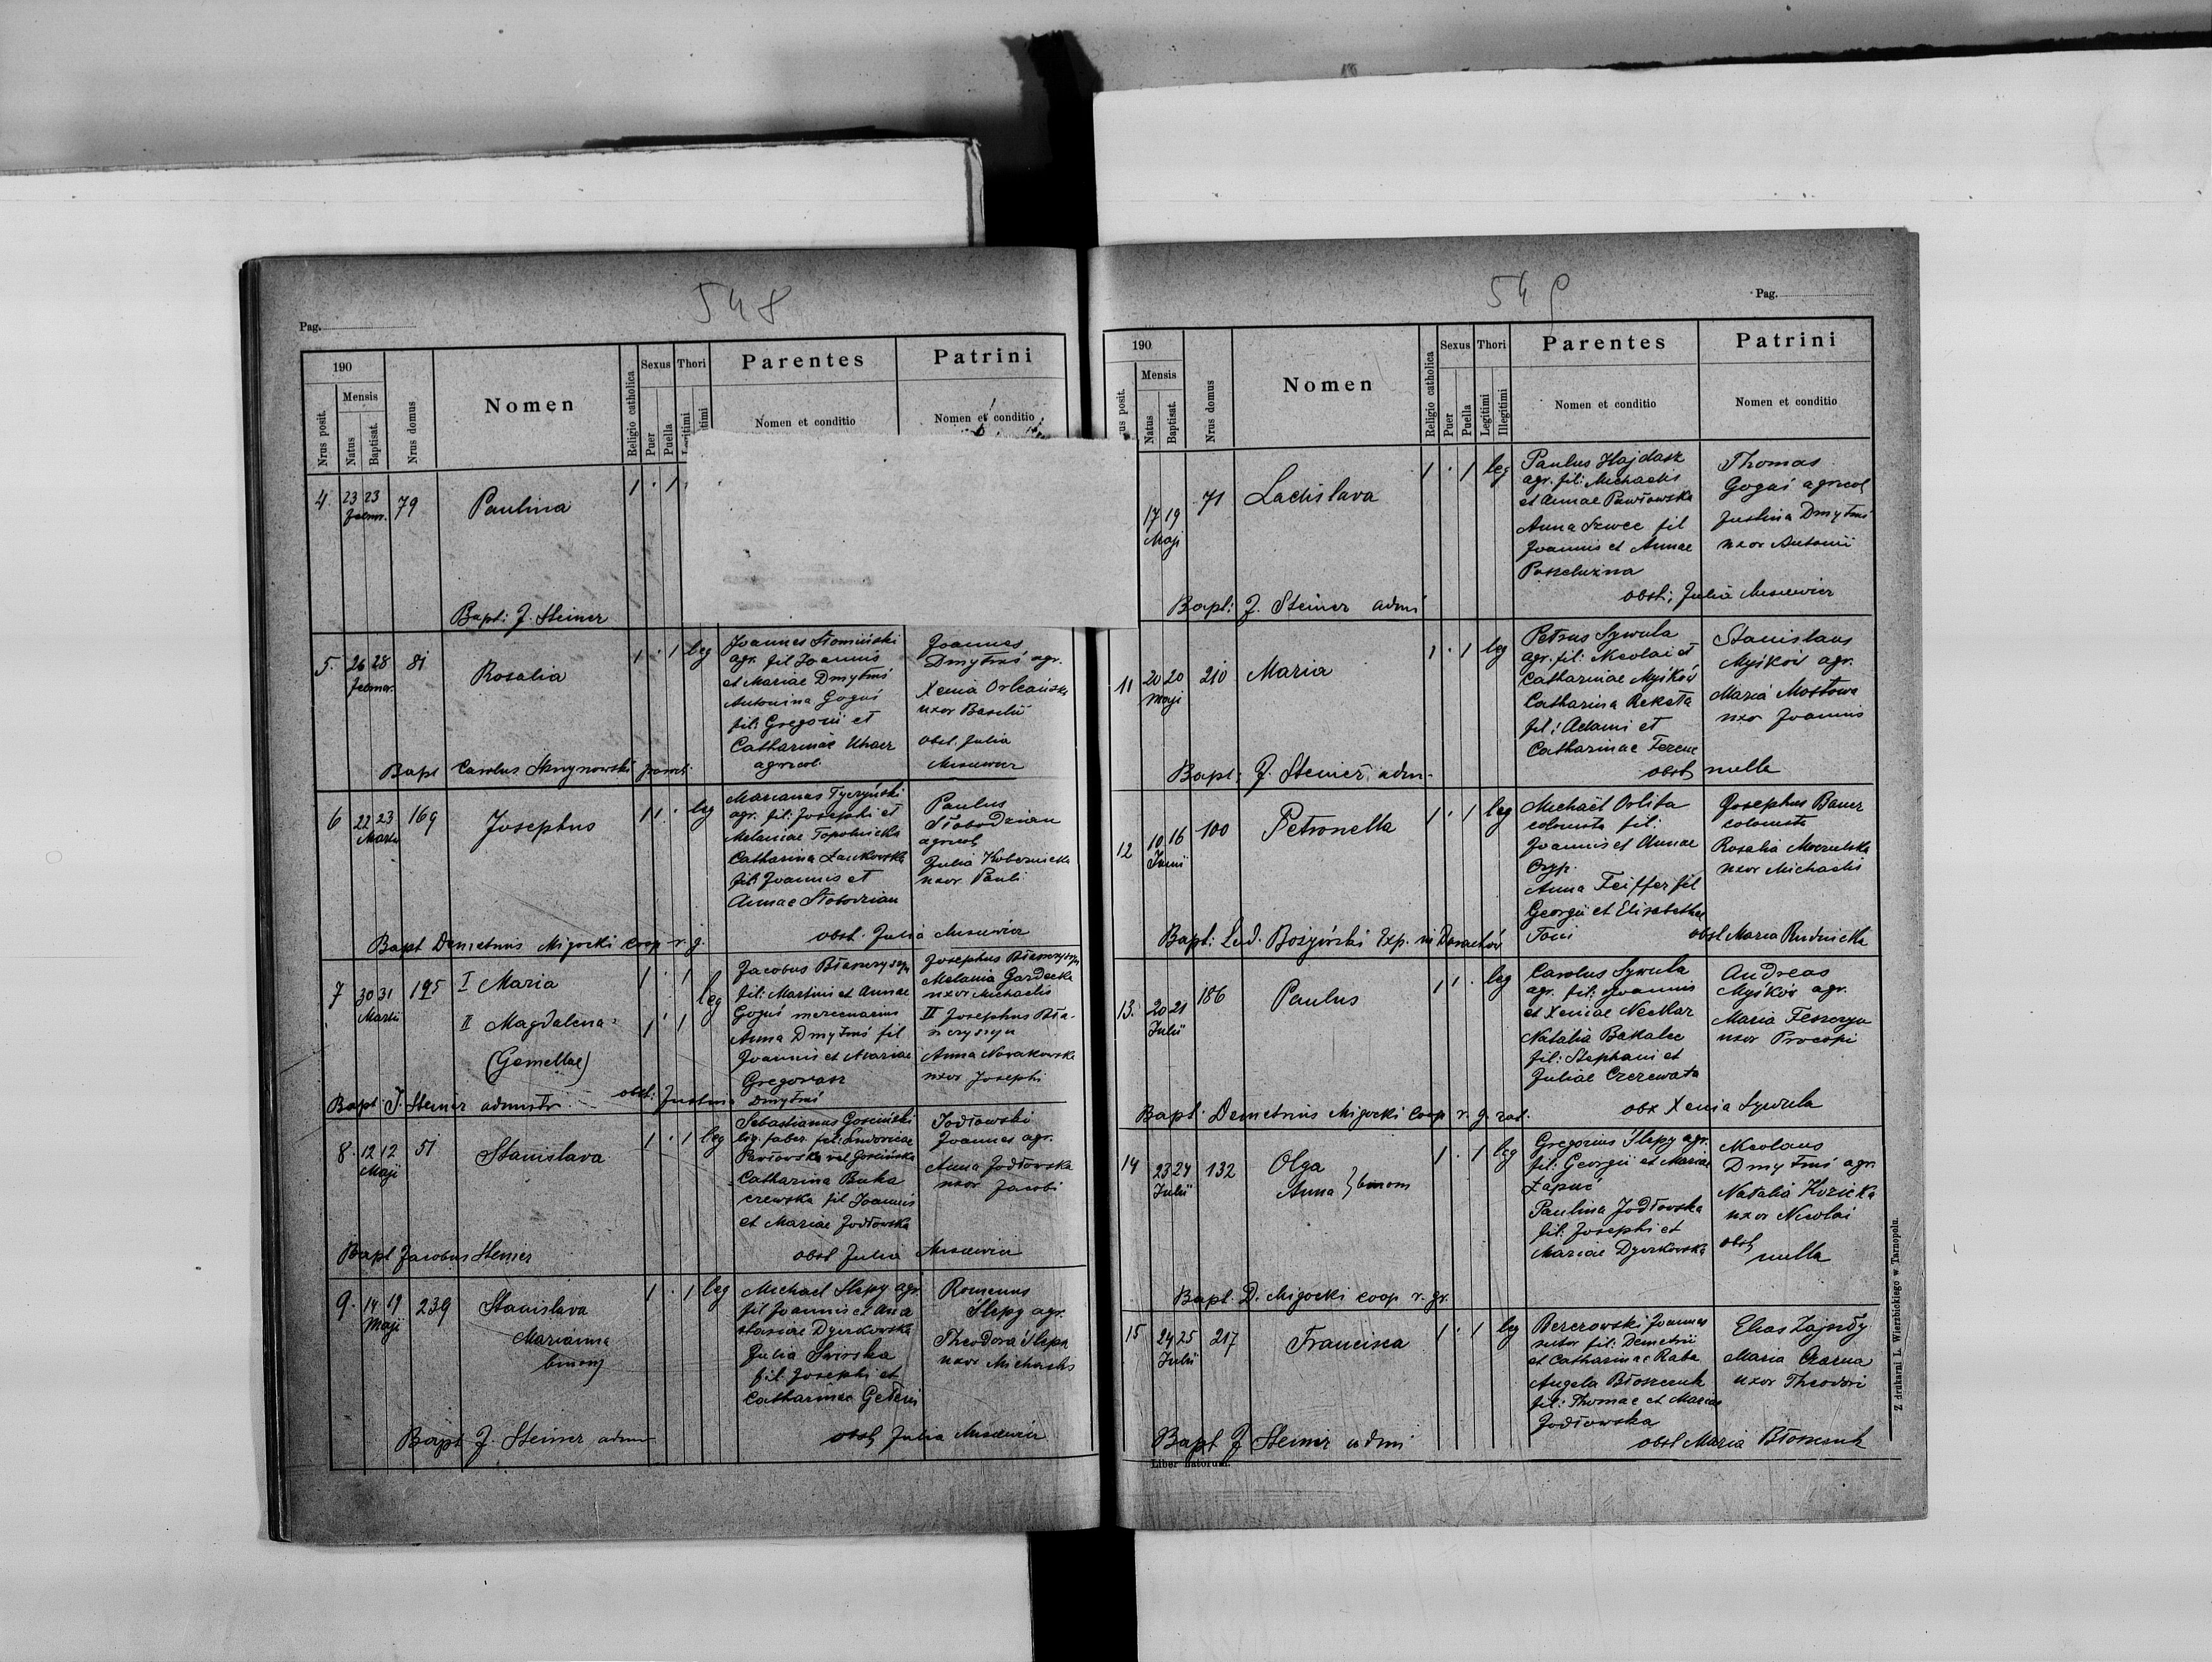 548
Pag.
190
Nrus posit.
Mensis
Natus
Baptisat.
Nrus domus
Nomen
Religio catholica
Sexus
Puer
Puella
Thori
Parentes
Nomen et conditio
Patrini
Nomen et conditio
4. 23 23 79 Paulina 1 . 1
Bapt: J. Steiner
5. 26 28 81 Rosalia 1 . 1 leg
Joannes Słomiński
agr. fil Joannis
et Mariae Dmytruś
Antonina Goguś
fil: Gregorii et
Catharinae
agricol.
Joannes
Dmytruś agr.
Xenia
uxor Basilii
obst. Julia
Misiewicz
Bapt Carolus paroch
6 22 23 169 Josephus 1 1 . leg
Martii
Marianus Tyczyński
agr. fil: Josephi et
Melaniae Topolnicka
Catharina Łankowska
fil: Joannis et
Annae Słobodzian
Paulus
Słobodzian
agricol
Julia Kobernicka
uxor Pauli
obst. Julia Misiewicz
Bapt Demetrius Migocki coop r. g.
7 30 31 195 I Maria 1 . 1 leg
Martii
II Magdalena 1 . 1
(Gemellae)
Jacobus
fil: Martini et Annae
Goguś mercenarius
Anna Dmytruś fil
Joannis et Mariae
Gregorasz
Josephus
Melania Gardecka
uxor Michaelis
II Josephus
Anna Novakowska
uxor Josephi
obst: Justina Dmytruś
Bapt J. Steiner adminstr.
8. 12 12 51 Stanislava 1 . 1 leg
Maji
Sebastianus Gosciński
lig. faber fil: Ludovicae
Pawłowska vel Gościńska
Catharina Buka
czewska fil Joannis
et Mariae Jodłowska
Jodłowski
Joannes agr.
Anna Jodłowska
uxor Jacobi
obst Julia Misiewicz
Bapt Jacobus Steiner
9. 14 19 239 Stanislava 1 . 1 leg
Maji
Marianna
binom
Michael Slepy agr.
fil Joannis et Ana
stasiae Dyczkowska
Julia Swirska
fil: Josephi et
Catharinae
Romanus
Ślepy agr.
Theodora Slepa
uxor Michaelis
obst Julia Misiewicz
Bapt J. Steiner admi
549
Pag.
190
Mensis
Natus
Baptisat.
Nrus domus
Nomen
Religio catholica
Sexus
Puer
Puella
Thori
Legitimi
Illegitimi
Parentes
Nomen et conditio
Patrini
Nomen et conditio
17 19 71 Ladislava 1 . 1 leg
Maji
Paulus Hajdasz
agr. fil: Michaelis
et Annae Pawłowska
Anna Szwec fil
Joannis et Annae
Poszeluzna
Thomas
Goguś agricol
Justina Dmytruś
uxor Antonii
obst: Julia Misiewicz
Bapt: J. Steiner admi
11 20 20 210 Maria 1 . 1 leg
Maji
Petrus Sywula
agr. fil: Nicolai et
Catharinae Myśków
Catharina Reketa
fil: Adami et
Catharinae Ferenc
Stanislaus
Myśków agr.
Maria Mostowa
uxor Joannis
obst nulla
Bapt: J. Steiner admi
12 10 16 100 Petronella 1 . 1 leg
Junii
Michael Orlita
colonista fil:
Joannis et Annae
Anna Feiffer fil
Georgii et Elisabethae
Josephus Bauer
colonista
Rosalia
uxor Michaelis
obst Maria Rudnicka
Bapt: Lud. Bożyński Exp. in
13. 20 21 186 Paulus 1 1 . leg
Julii
Carolus Sywula
agr. fil: Joannis
et Xeniae Neckar
Natalia Bakalec
fil: Stephani et
Juliae Czerewata
Andreas
Myśków agr.
Maria
uxor Procopi
obst Xenia Sywula
Bapt. Demetrius Migocki coop r. g. rat.
14 23 24 132 Olga 1 . 1 leg
Julii
Anna } binom
Gregorius Ślepy agr.
fil: Georgii et Mariae
Łapuć
Paulina Jodłowska
fil: Josephi et
Mariae Dyczkowska
Nicolaus
Dmytruś agr.
Natalia Kozicka
uxor Nicolai
obst
nulla
Bapt. D. Migocki coop r. gr.
15 24 25 217 Francisca 1 . 1 leg
Julii
Berezowski Joannes
sutor fil: Demetrii
et Catharinae Raba
Angela Błoszczuk
fil: Thomae et Mariae
Jodłowska
Elias Zajezdy
Maria Czarna
uxor Theodori
obst Maria Błoszczuk
Bapt J Steiner admi
Liber natorum.
Z drukarni L. Wierzbickiego w Tarnopolu.